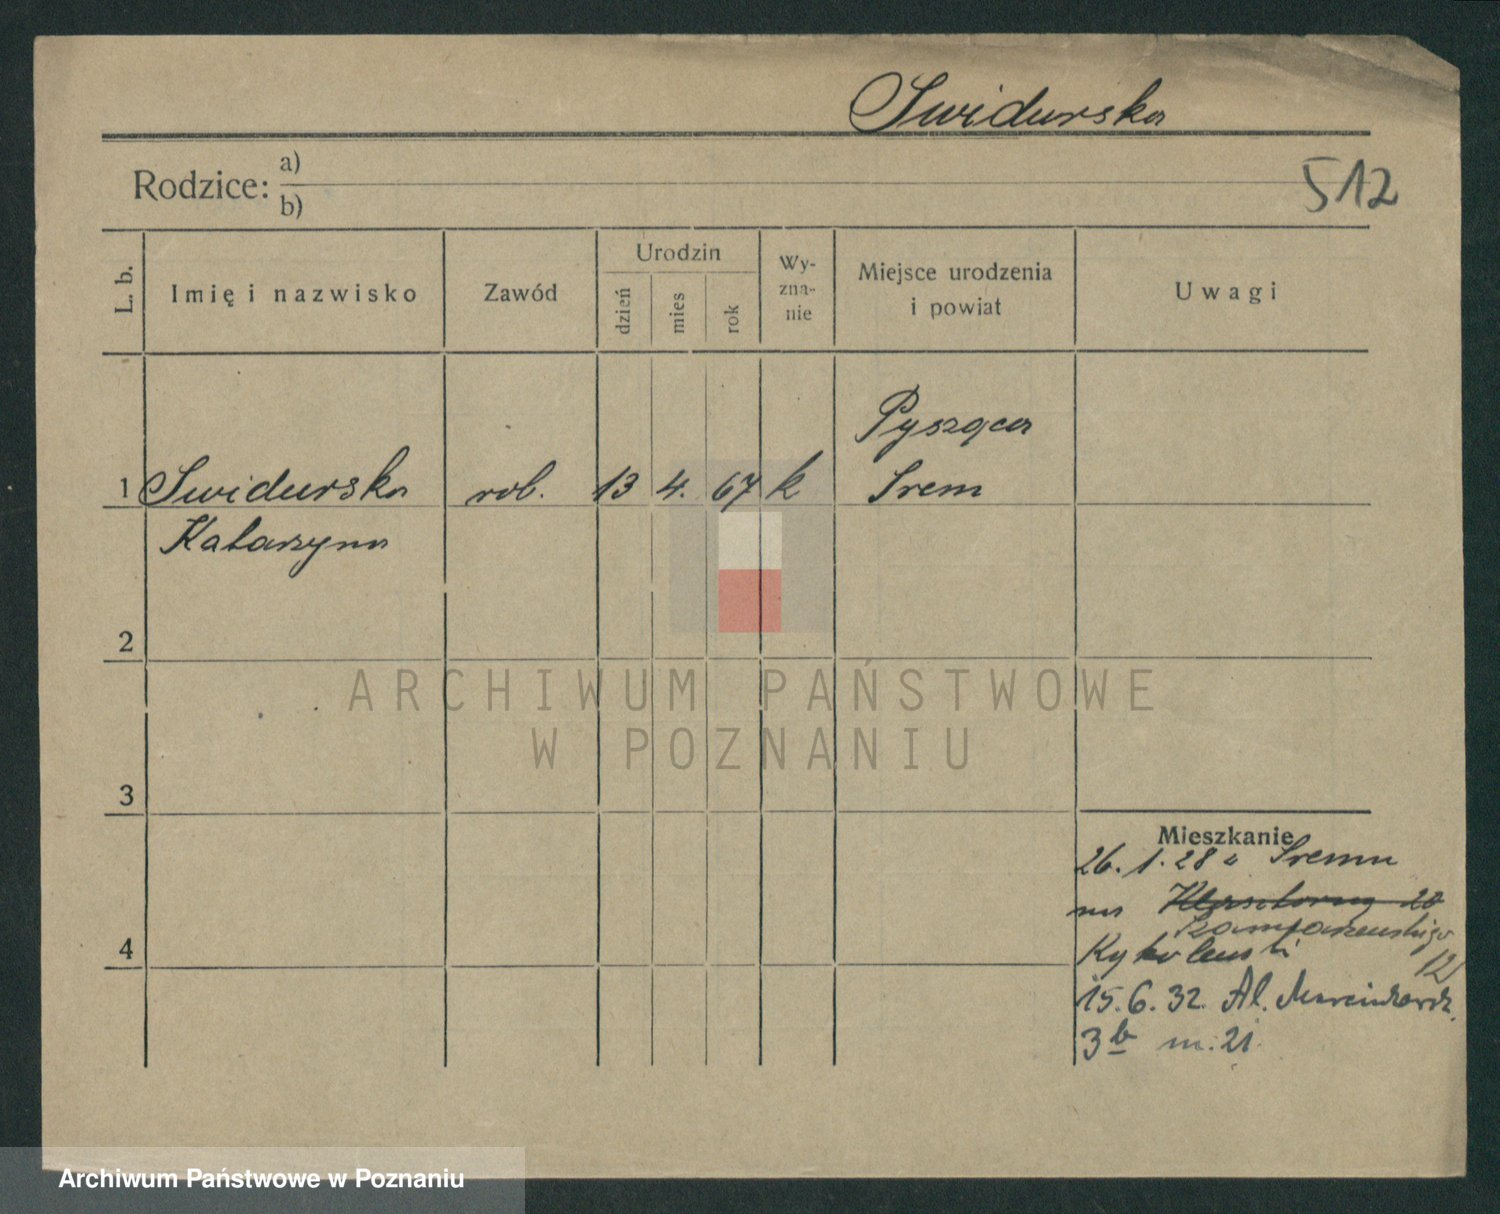 Swidurska
Rodzice: a)
b)
512
L. b.
Imię i nazwisko
Zawód
Urodzin
dzień
mies
rok
Wy-
zna-
nie
Miejsce urodzenia
i powiat
Uwagi
Pysząca
1 Swidurska rob. 13 4. 67 k Srem
Katarzyna
2
3
4
Mieszkanie
26.1.28 z Sremu
na 20
12
15.6.32. Al. Marcinkowsk.
3b m. 21
ARCHIWUM PAŃSTWOWE
W POZNANIU
Archiwum Państwowe w Poznaniu